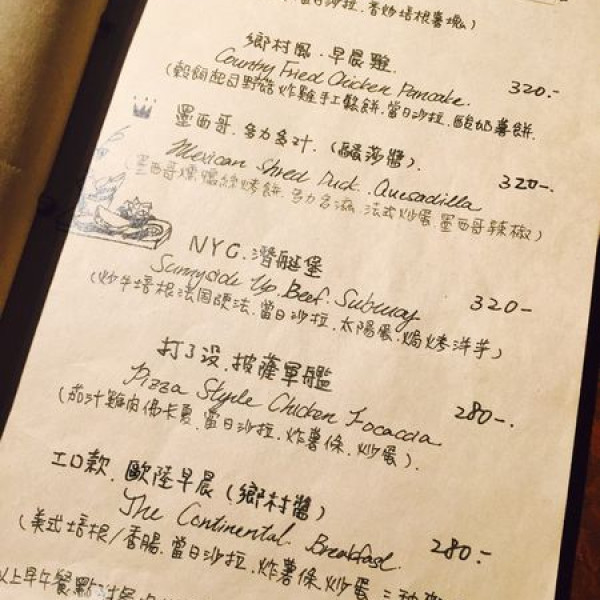 當日沙拉.香炒培根薯塊)
鄉村風.早晨雞.
Country Fried Chicken Pancake. 320.-
(穀飼起司野菇炸雞手工鬆餅.當日沙拉.酸奶薯餅.
墨西哥.多力多汁.(騷莎醬)
Mexican Shred Duck. Quesadilla 320-.
(墨西哥燻鴨絲烤餅.多力多滋.法式炒蛋.墨西哥辣椒)
NYC.潛艇堡
Sunnyside Up. Beef. Subway 320-
(炒牛培根法国硬法.當日沙拉.太陽蛋.焗烤洋芋)
打了没.披薩軍艦
Pizza Style Chicken Focaccia 280-.
(茄汁雞肉佛卡夏.當日沙拉.炸薯條.炒蛋).
工口款.歐陸早晨(鄉村醬)
The Continental. Breakfast. 280.-
(美式培根/香腸.當日沙拉.炸薯條.炒蛋.三種
以上早午餐點附餐